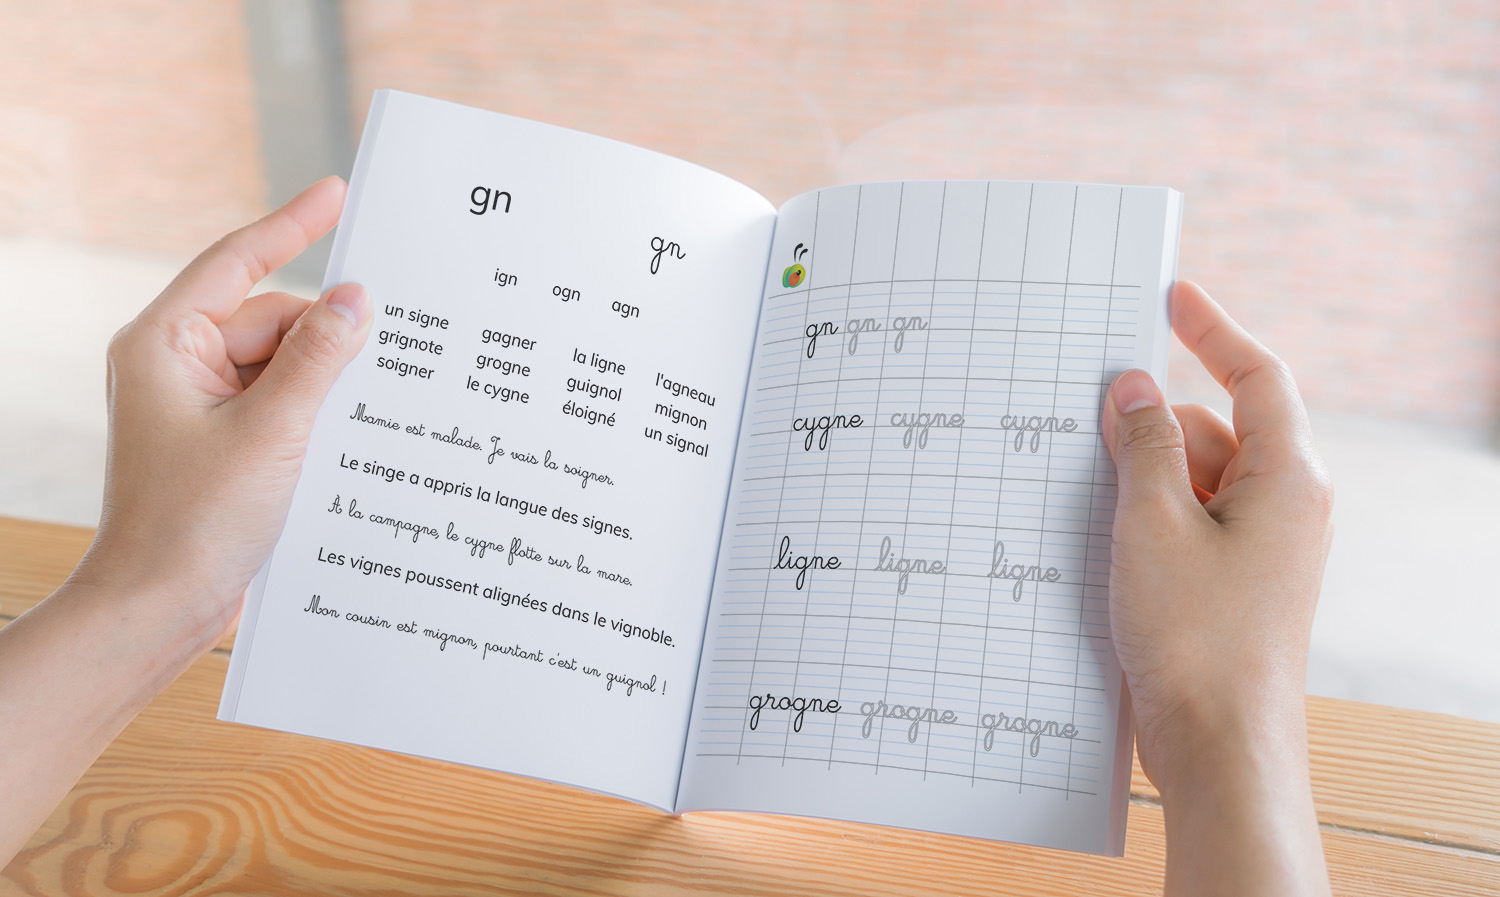 gn
gn
ign ogn agn
un signe gagner la ligne l'agneau
grignote grogne guignol mignon
soigner le cygne éloigné un signal
Mamie est malade. Je vais la soigner.
Le singe a appris la langue des signes.
À la campagne, le cygne flotte sur la mare.
Les vignes poussent alignées dans le vignoble.
Mon cousin est mignon, pourtant c'est un guignol !
gn gn gn
cygne cygne cygne
ligne ligne ligne
grogne grogne grogne